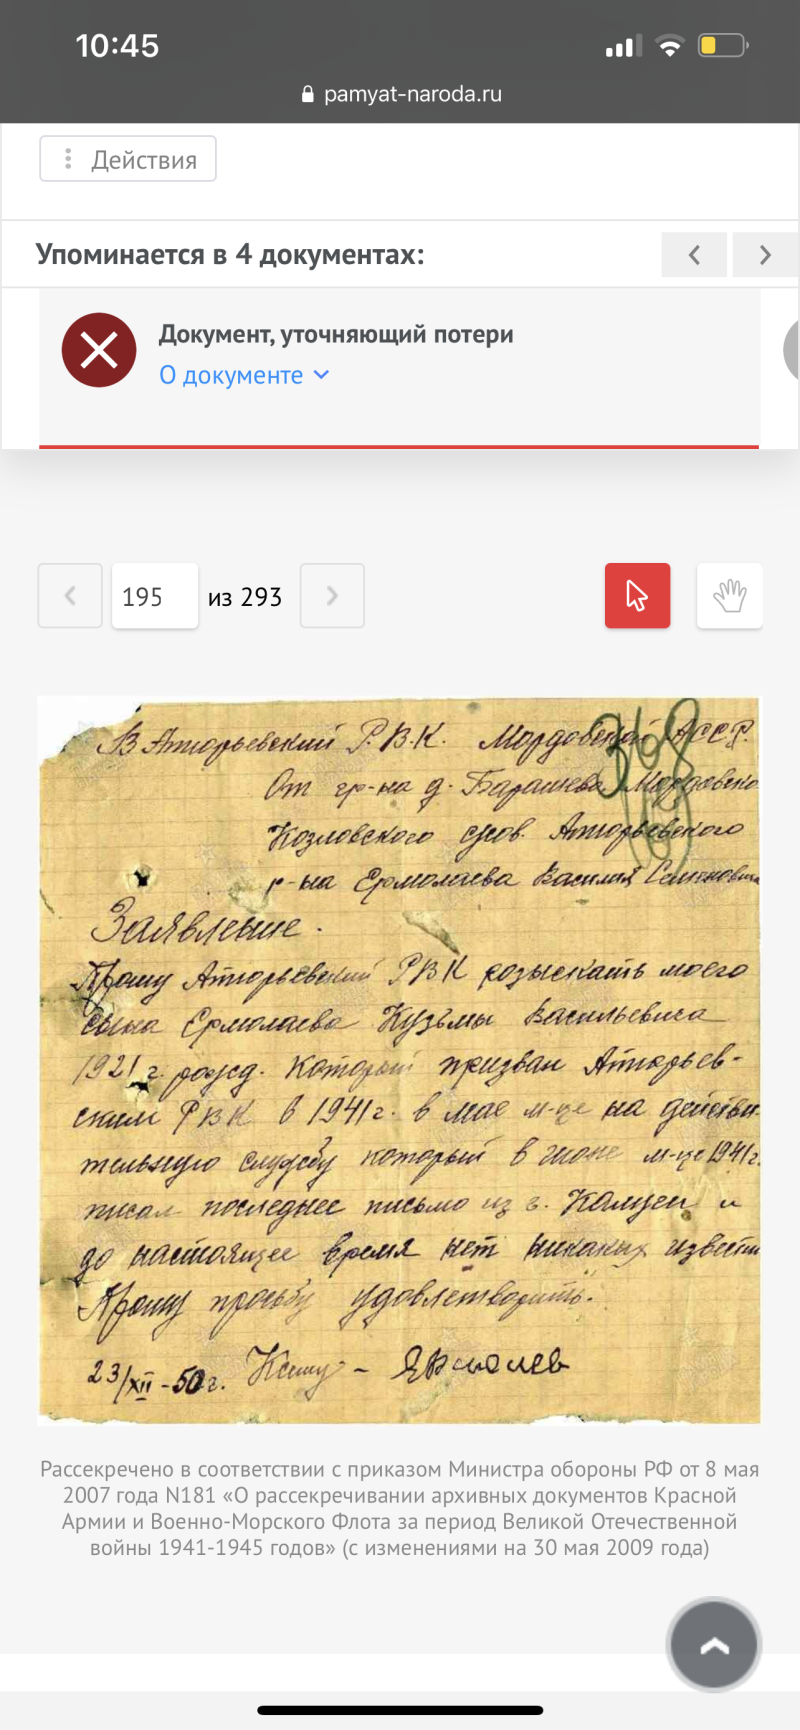 10:45
pamyat-naroda.ru
Действия
Упоминается в 4 документах:
Документ, уточняющий потери
О документе
195 из 293
В Атюрьевский Р.В.К. Мордовской АССР.
От гр-на д. Барашева Мордовско
Козловского Атюрьевского
р-на Ермолаева Василия
Заявление.
Прошу Атюрьевский РВК розыскать моего
сына Ермолаева Кузьмы Васильевича
1921 г. рожд. Который призван Атюрьев-
ским РВК в 1941 г. в мае м-це на действи
тельную службу который в июне м-це 1941 г.
писал последнее письмо из г. и
до настоящее время нет никаких извести
Прошу прозьбу удовлетворить.
23/XII-50 г. —
Рассекречено в соответствии с приказом Министра обороны РФ от 8 мая
2007 года N181 «О рассекречивании архивных документов Красной
Армии и Военно-Морского Флота за период Великой Отечественной
войны 1941-1945 годов» (с изменениями на 30 мая 2009 года)